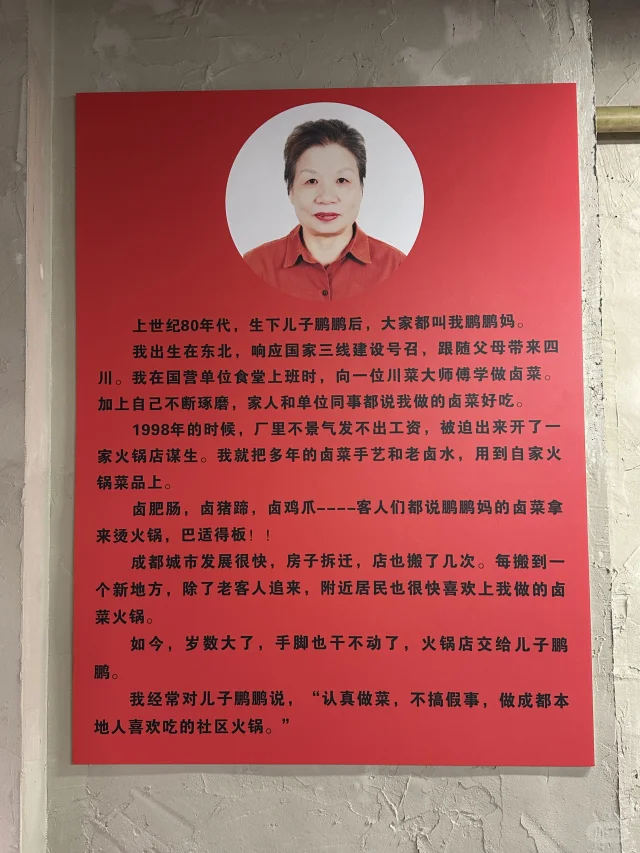 上世纪80年代，生下儿子鹏鹏后，大家都叫我鹏鹏妈。
我出生在东北，响应国家三线建设号召，跟随父母带来四
川。我在国营单位食堂上班时，向一位川菜大师傅学做卤菜。
加上自己不断琢磨，家人和单位同事都说我做的卤菜好吃。
1998年的时候，厂里不景气发不出工资，被迫出来开了一
家火锅店谋生。我就把多年的卤菜手艺和老卤水，用到自家火
锅菜品上。
卤肥肠，卤猪蹄，卤鸡爪----客人们都说鹏鹏妈的卤菜拿
来烫火锅，巴适得板！！
成都城市发展很快，房子拆迁，店也搬了几次。每搬到一
个新地方，除了老客人追来，附近居民也很快喜欢上我做的卤
菜火锅。
如今，岁数大了，手脚也干不动了，火锅店交给儿子鹏
鹏。
我经常对儿子鹏鹏说，“认真做菜，不搞假事，做成都本
地人喜欢吃的社区火锅。”